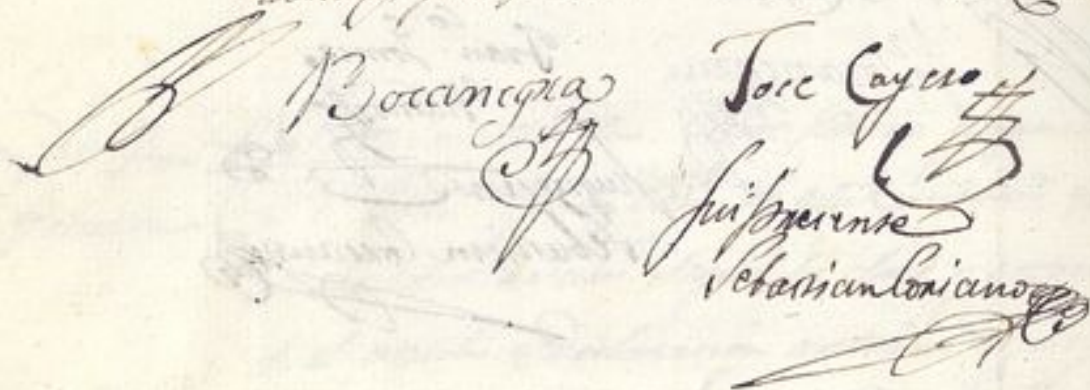 Bocanegra
Jose Cayero
fui presente
Sebastian Coriano